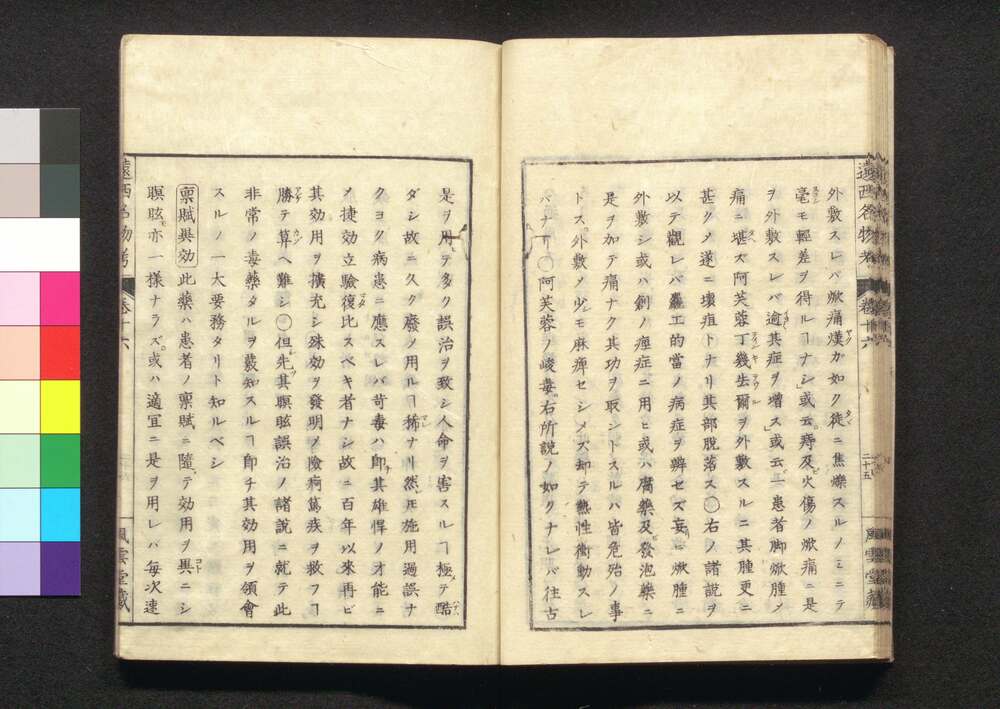 遠西名物考
卷十六
二十五
風雲堂藏
外敷スレバ焮痛㷔カ如ク徒ニ焦爍スルノミニテ
毫モ輕差ヲ得ルヿナシ」或云痔及火傷ノ焮痛ニ是
ヲ外敷スレバ逾其症ヲ增ス」或云一患者脚焮腫ノ
痛ニ堪ス阿芙蓉丁幾生爾ヲ外敷スルニ其腫更ニ
甚クノ遂ニ壞疽トナリ其部脱落ス○右ノ諸說ヲ
以テ觀レバ麤工的當ノ病症ヲ辨セズ妄ニ焮腫ニ
外敷シ或ハ創ノ痙症ニ用ヒ或ハ腐藥及發泡藥ニ
是ヲ加テ痛ナク其功ヲ取ントスルハ皆危殆ノ事
トス外敷ノ少モ麻痺セシメズ却テ熱性衝動スレ
バナリ○阿芙蓉ノ峻毒右所說ノ如クナレバ往古
是ヲ用テ多ク誤治ヲ致シ人命ヲ害スルヿ極テ酷
ダシ故ニ久ク廢ノ用ルヿ稀ナリ然𪜈施用過誤ナ
クヨク病患ニ應スレバ苛毒ハ卽其雄悍ノ才能ニ
ノ捷効立驗復比スベキ者ナシ故ニ百年以來再ビ
其効用ヲ擴充シ殊効ヲ發明ノ險病篤疾ヲ救フヿ
勝テ算ヘ難シ○但先其瞑眩誤治ノ諸說ニ就テ此
非常ノ毒藥タルヲ藪知スルヿ卽チ其効用ヲ領會
スルノ一大要務タリト知ルベシ
稟賦異効 此藥ハ患者ノ稟賦ニ隨テ効用ヲ異ニシ
瞑眩亦一樣ナラズ或ハ適宜ニ是ヲ用レハ每次速
遠西名物考
卷十六
風雲堂藏